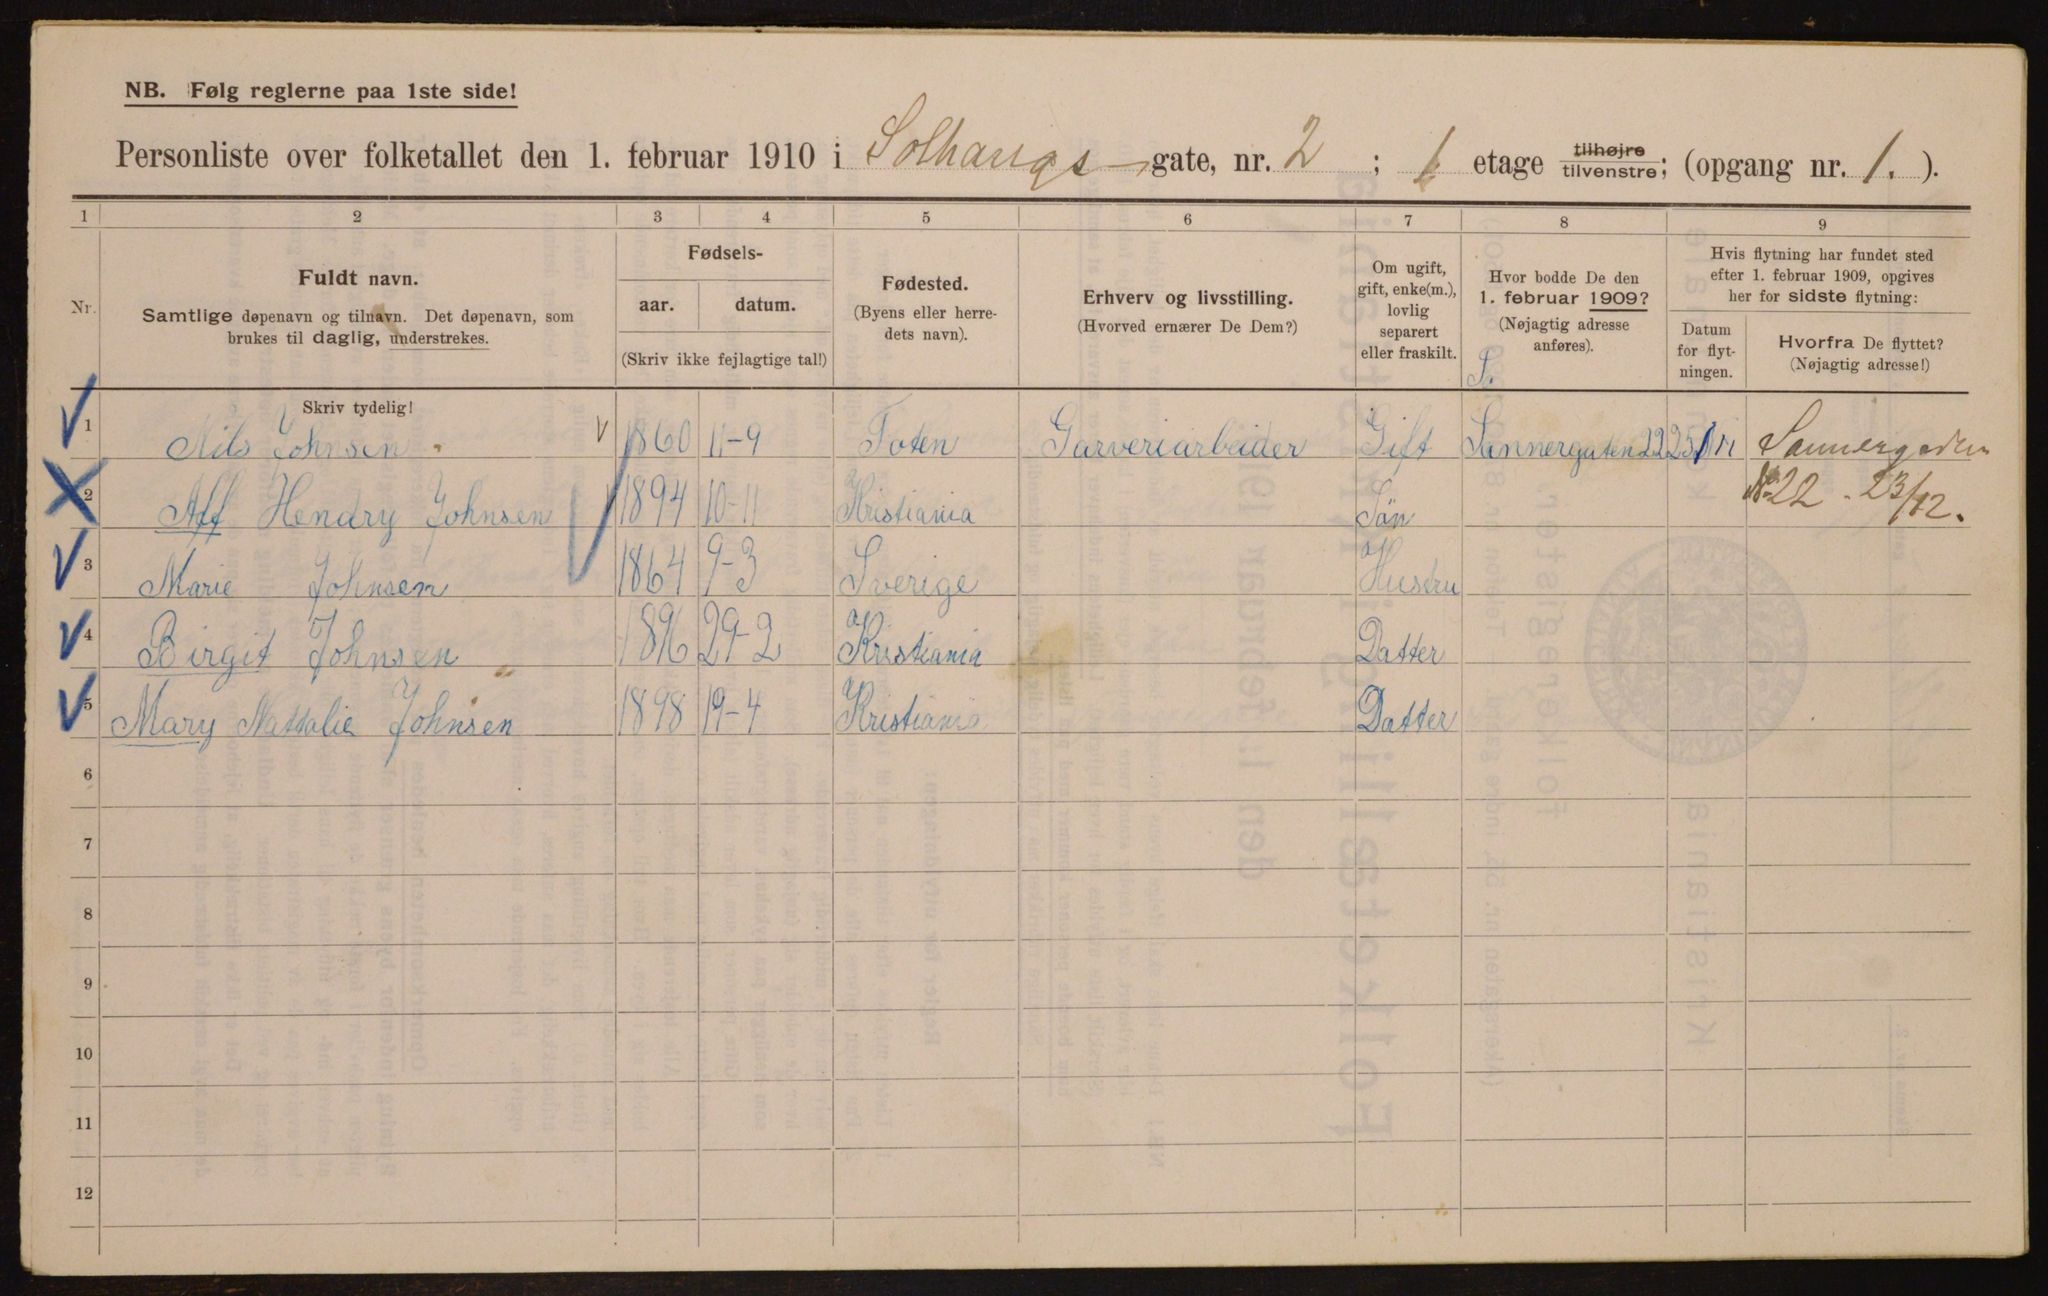 NB. Følg reglerne paa 1ste side!
Personliste over folketallet den 1. februar 1910 i Solhaugs gate, nr. 2 ; 1 etage tilhøjre tilvenstre; (opgang nr. 1. ).
1 2 3 4 5 6 7 8 9
Nr.
Fuldt navn.
Samtlige døpenavn og tilnavn. Det døpenavn, som
brukes til daglig, understrekes.
Fødsels-
aar. datum.
(Skriv ikke fejlagtige tal!)
Fødested.
(Byens eller herre-
dets navn).
Erhverv og livsstilling.
(Hvorved ernærer De Dem?)
Om ugift,
gift, enke(m.),
lovlig
separert
eller fraskilt.
Hvor bodde De den
1. februar 1909?
(Nøjagtig adresse
anføres).
S.
Hvis flytning har fundet sted
efter 1. februar 1909, opgives
her for sidste flytning:
Datum
for flyt-
ningen.
Hvorfra De flyttet?
(Nøjagtig adresse!)
Skriv tydelig!
1 Nils Johnsen 1860 11-9 Toten Garveriarbeider Gift Sannergaten 22 Sannergaden
No 22 - 23/12.
2 Aff Hendry Johnsen 1894 10-11 Kristiania Sön
3 Marie Johnsen 1864 9-3 Sverige Hustru
4 Birgit Johnsen 1896 29-2 Kristiania Datter
5 Mary Nattalie Johnsen 1898 19-4 Kristiania Datter
6
7
8
9
10
11
12